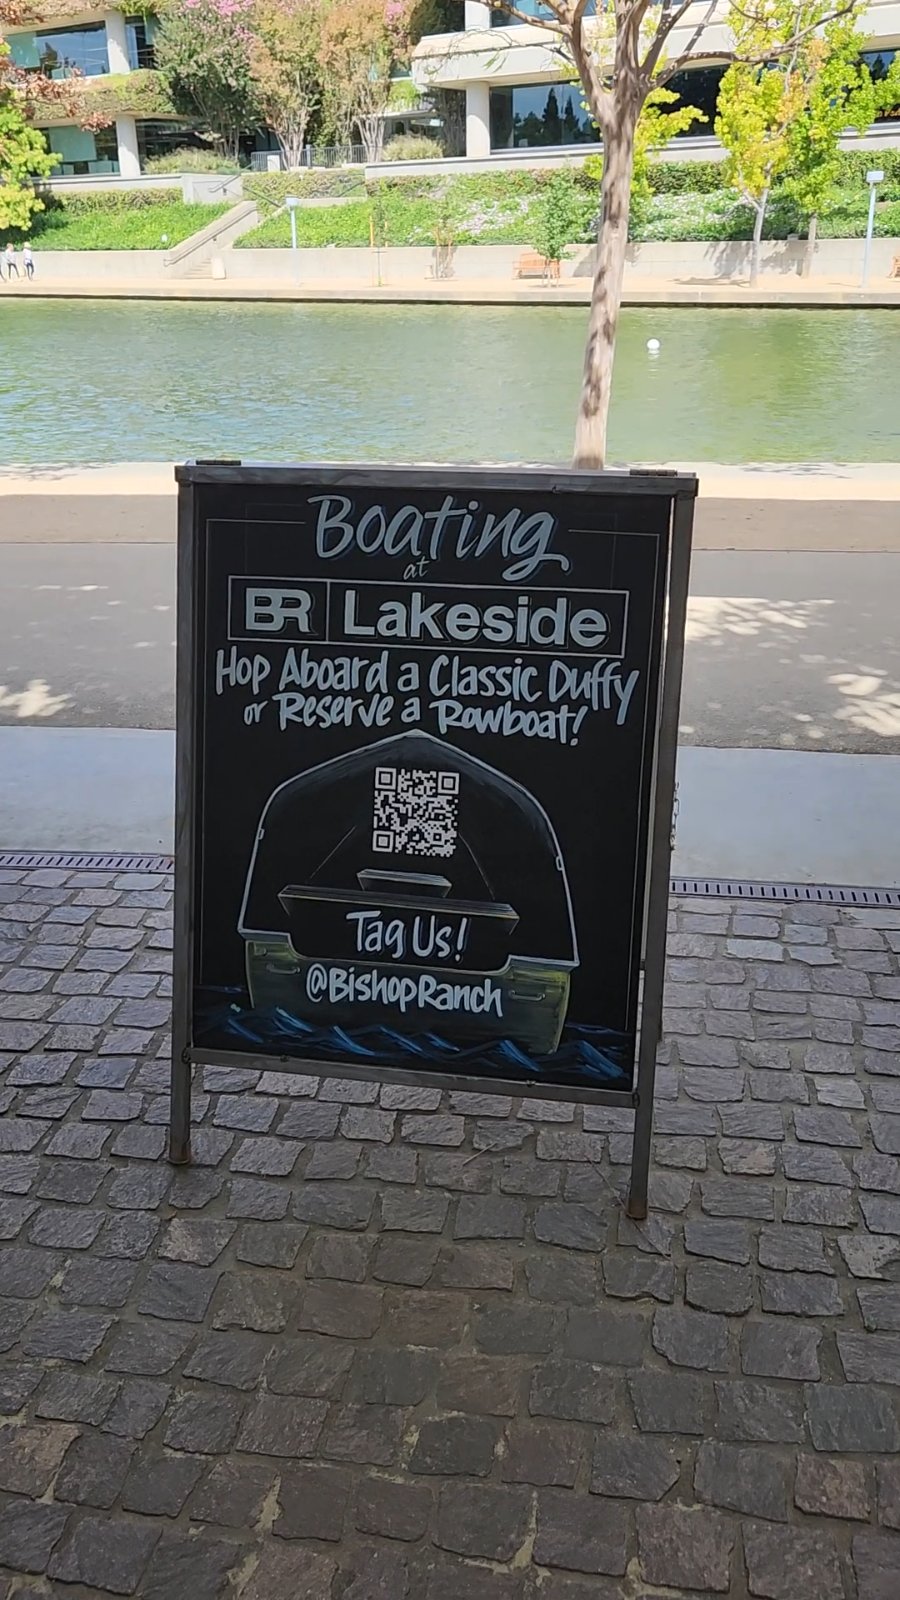 Boating
at
BR Lakeside
Hop Aboard a Classic Duffy
or Reserve a Rowboat!
Tag Us!
@BishopRanch